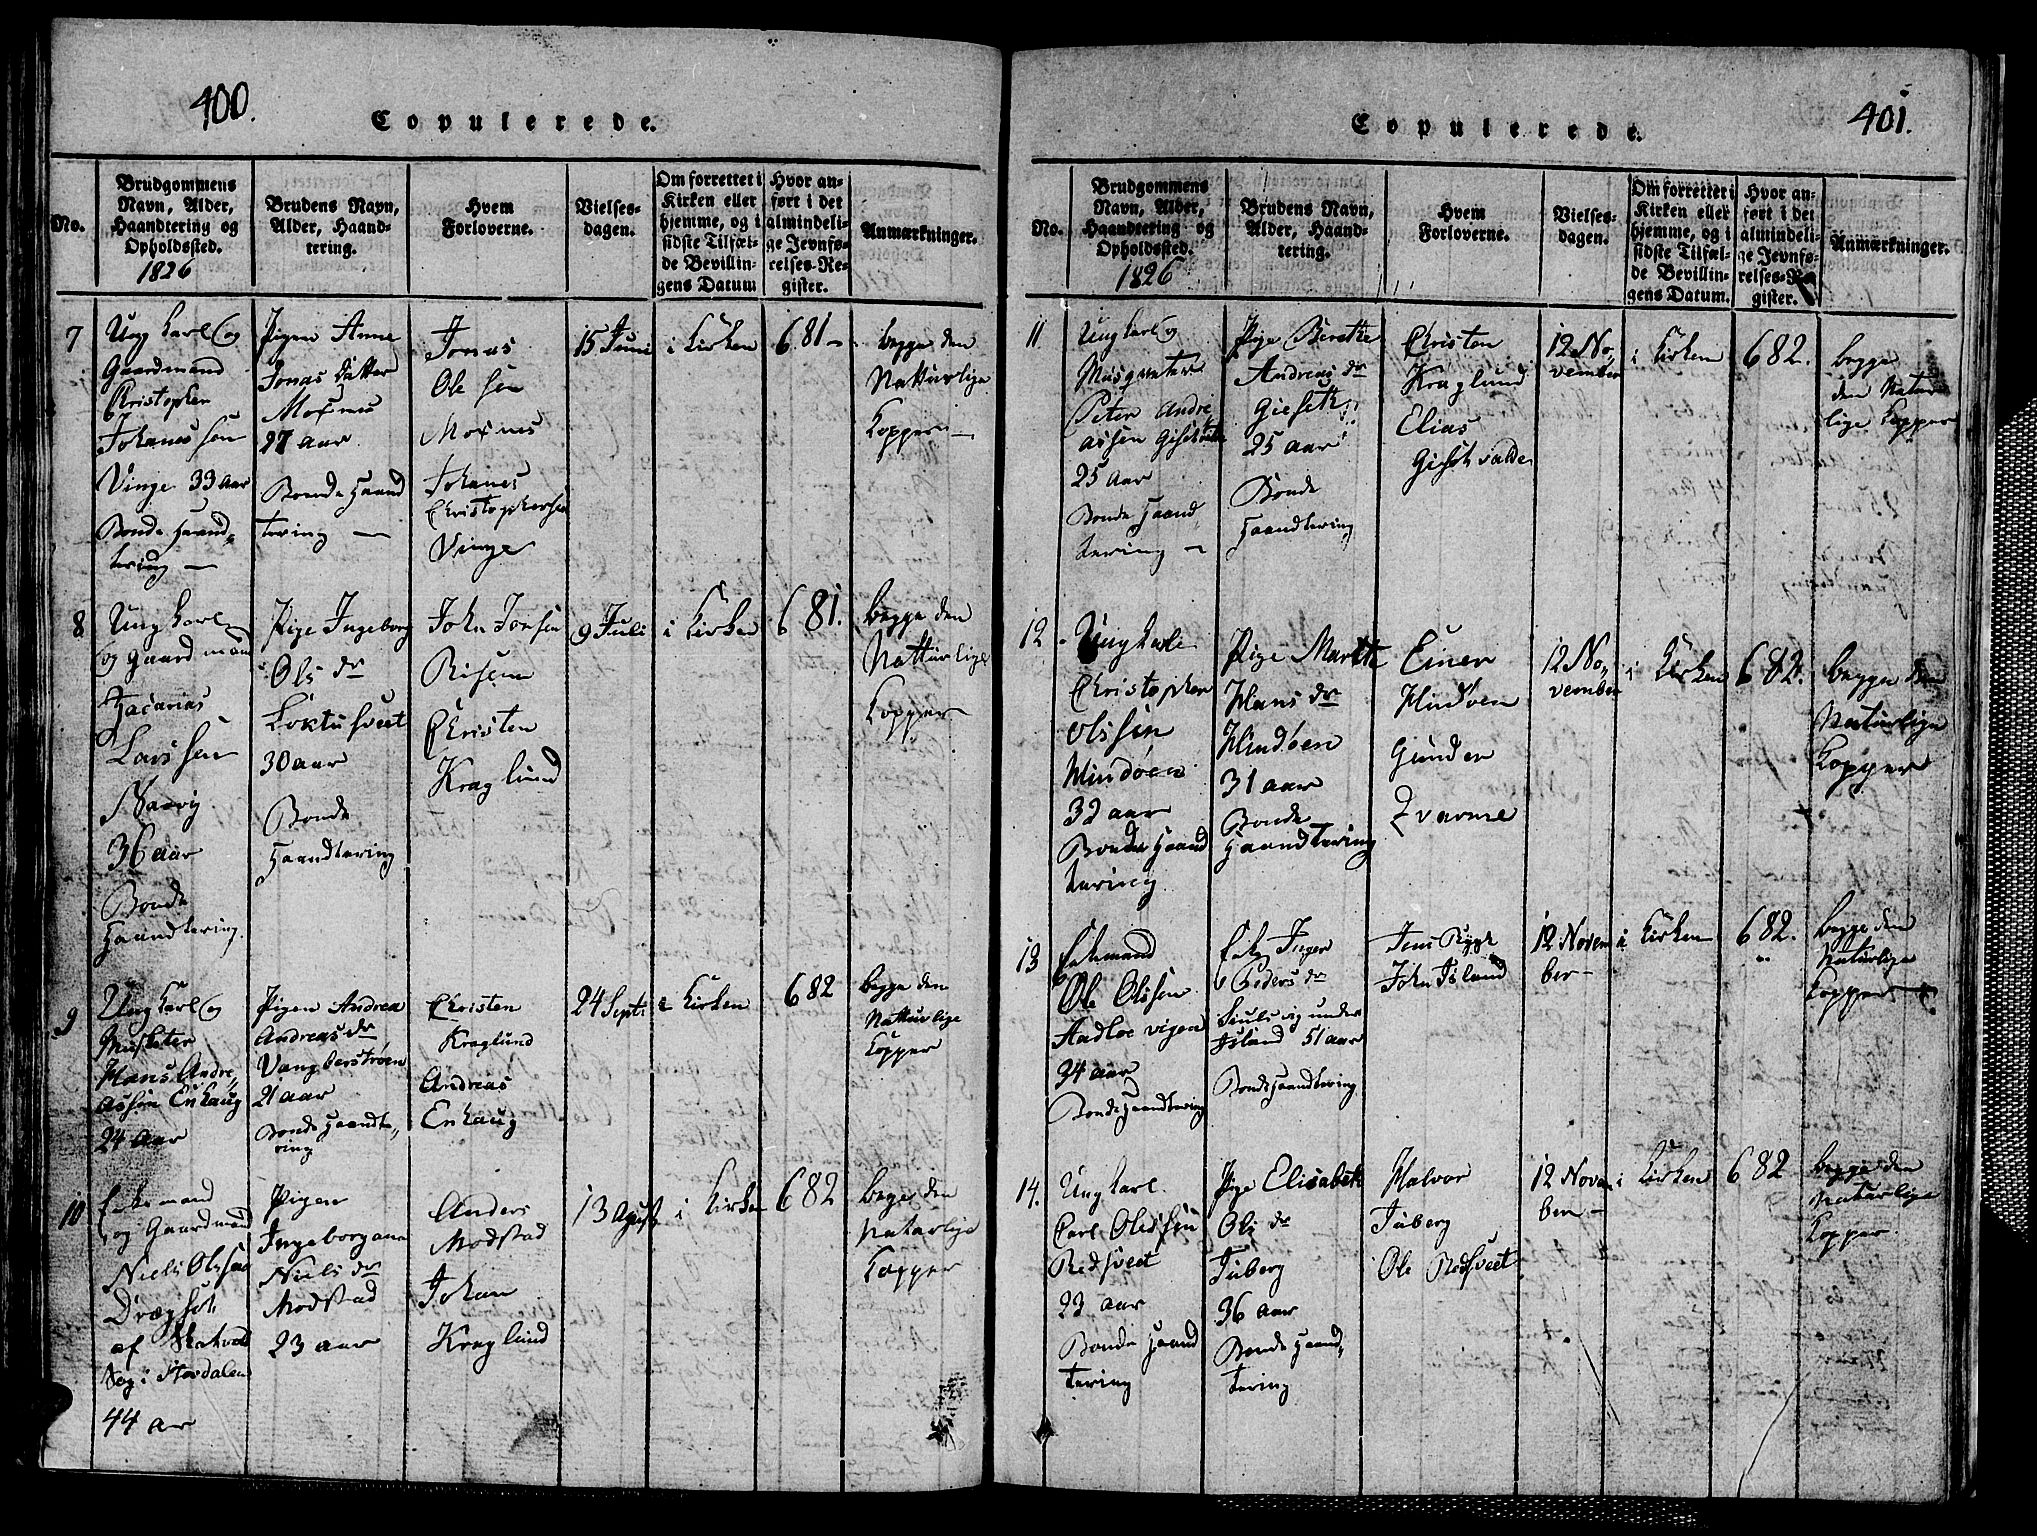 400.
Copulerede.
No.
Brudgommens
Navn, Alder,
Haandtering og
Opholdssted.
1826
Brudens Navn,
Alder, Haand-
tering.
Hvem
Forloverne.
Vielses-
dagen.
Om forrettet i
Kirken eller
hjemme, og i
sidste Tilfæl-
de Bevillin-
gens Datum
Hvor an-
ført i det
almindeli-
ge Jevnfø-
relses-Re-
gister.
Anmærkninger.
7
Ung karl og
Gaardmand
Christopher
Johanessen
Vinge 33 aar
Bonde Haand-
tering —
Pigen Anne
Jonas Datter
Moxnes
27 aar
Bonde Haand
tering —
Jonas
Olesen
Moxnes
Johanes
Christophersen
Vinge
15 Juni
i Kirken
681 —
begge den
Natturlige
Kopper —
8
Ung karl
og Gaardmand
Zacarias
Larssen
Naavig
36 aar
Bonde
Haandtering.
Pige Ingeborg
Ols dr
Loktusveet
30 aar
Bonde
Haandtering
John Jonsen
Risem
Christen
Kraglund
9 Juli
i Kirken
681.
begge den
Natturlige
Kopper
9
Ung karl og
Musketer
Hans Andre-
assen Enhaug
24 aar
Pigen Andrea
Andreas dr
Vangberstrøen
21 aar
Bonde Haandte-
ring
Christen
Kraglund
Andreas
Enhaug
24 Sept:
i Kirken
682
begge den
Natturlige
Kopper
10
Enkemand
og Gaardmand
Niels Olssen
Drægset
af Skatval
Sog i Stordalen
44 ar
Pigen
Ingeborgana
Niels dr
Modstad
23 aar
Anders
Modstad
Johan
Kraglund
13 Agust
i Kirken
682
bege den
Naturlige
Kopper
401.
Copulerede.
No.
Brudgommens
Navn, Alder,
Haandtering og
Opholdssted.
1826
Brudens Navn,
Alder, Haand-
tering.
Hvem
Forloverne.
Vielses-
dagen.
Om forrettet i
Kirken eller
hjemme, og i
sidste Tilfæl-
de Bevillin-
gens Datum.
Hvor an-
ført i det
almindeli-
ge Jevnfø-
relses-Re-
gister.
Anmærkninger.
11
Ung karl og
Musqueter
Peter Andre-
assen
25 aar
Bonde Haand-
tering —
Pige Berethe
Andreas dr
25 aar
Bonde
Haandtering
Christen
Kraglund
Elias
12 No-
vember
i Kirken
682.
begge
den Natur
lige Kopper
12
Ungkarl
Christopher
Olssen
Hindøen
32 aar
Bonde Haand
tering
Pige Marethe
Hans dr
Hindøen
31 aar
Bonde
Haandtering
Einer
Hindøen
Gunder
12 No-
vember
i Kirken
682.
begge den
Naturlige
Kopper
13
Enkemand
Ole Olssen
34 aar
Bonde Haandtering
Enke Inger
Peders dr
under
Island 51 aar
Bonde Haandtering
Jens Rygh
John Island
12 Novem
ber —
i Kirken
682.
begge den
Naturlige
Kopper —
14.
Ung karl
Carl Olessen
Redsveet
23 aar
Bonde Haand
tering
Pige Elisabeth
Ols dr
Tuberg
36 aar
Bonde Haand-
tering
Halvor
Tuberg
Ole Redsveet
12 Novem
ber —
i Kirken
682
begge den
Naturlige
Kopper